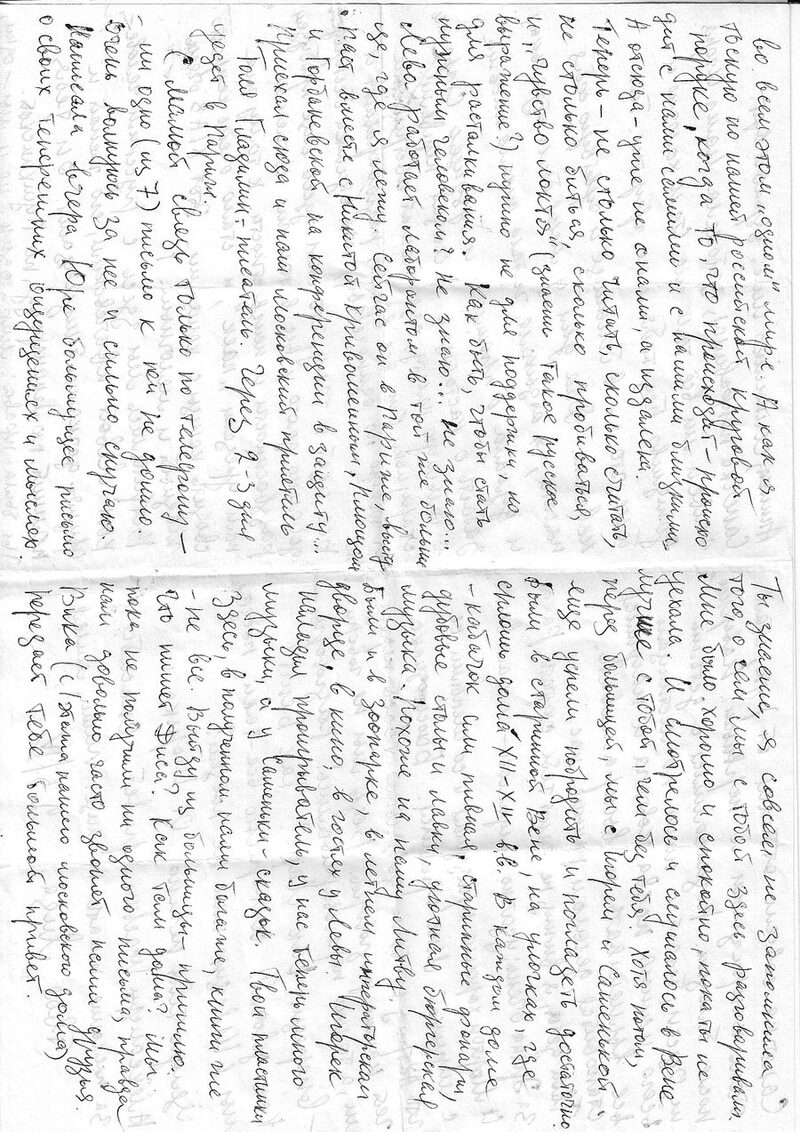 во всем этом „одном" мире. А как я
тоскую по нашей российской круговой
поруке, когда то что происходит – происхо
дит с нами самими и с нашими близкими
А отсюда – уже не с нами, а издалека.
Теперь – не столько читать, сколько считать,
не столько биться, сколько пробиваться,
и „чувство локтя" (знаешь такое русское
выражение?) нужно не для поддержки, но
для расталкивания. Как быть, чтобы стать
нужным человеком? Не знаю... не знаю...
Лева работает лаборантом в той же больни
це, где я лежу. Сейчас он в Париже, высту
пает вместе с Никитой Кривошеиным, Плющом
и Горбаневской на конференции в защиту...
Приехал сюда и наш московский приятель
Толя Гладилин – писатель. Через 2-3 дня
уедет в Париж.
С мамой связь только по телефону –
– ни одно (из 7) письмо к ней не дошло.
Очень волнуюсь за нее и сильно скучаю.
Написала вчера Юре большущее письмо
о своих теперешних ощущениях и мыслях.
Ты знаешь, я совсем не запомнила
того, о чем мы с тобой здесь разговаривали.
Мне было хорошо и спокойно, пока ты не
уехала. И смотрелось и слушалось в Вене
лучше с тобой, чем без тебя. Хотя потом,
перед больницей, мы с Игорем и Сашенькой
еще успели побродить и поглазеть достаточно.
Были в старинной Вене, на улочках, где
сплошь дома XII-XIV в.в. В каждом доме
– кабачок или пивная, старинные фонари,
дубовые столы и лавки, уютная бюргерская
музыка. Похоже на нашу Литву.
Были и в зоопарке, в летнем императорском
дворце, в кино, в гостях у Левы. Игорек
наладил проигрыватель, у нас теперь много
музыки, а у Сашеньки – сказок. Твои пластинки
здесь, в полученном нами багаже, книги же
– не все. Выйду из больницы – пришлю.
Что пишет Диса? Как там дома? Мы
пока не получили ни одного письма, правда
нам довольно часто звонят наши друзья.
Вика (с / этажа нашего московского дома)
передает тебе большой привет.